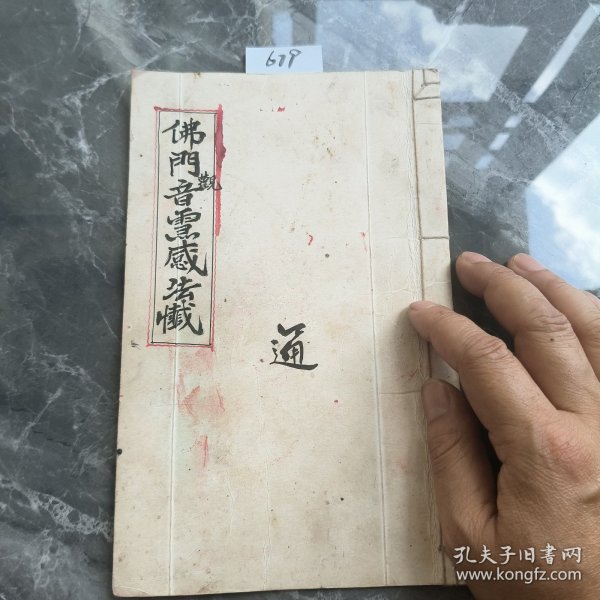 679
佛門觀音靈感法懺
通
孔夫子旧书网
www.kongfz.com